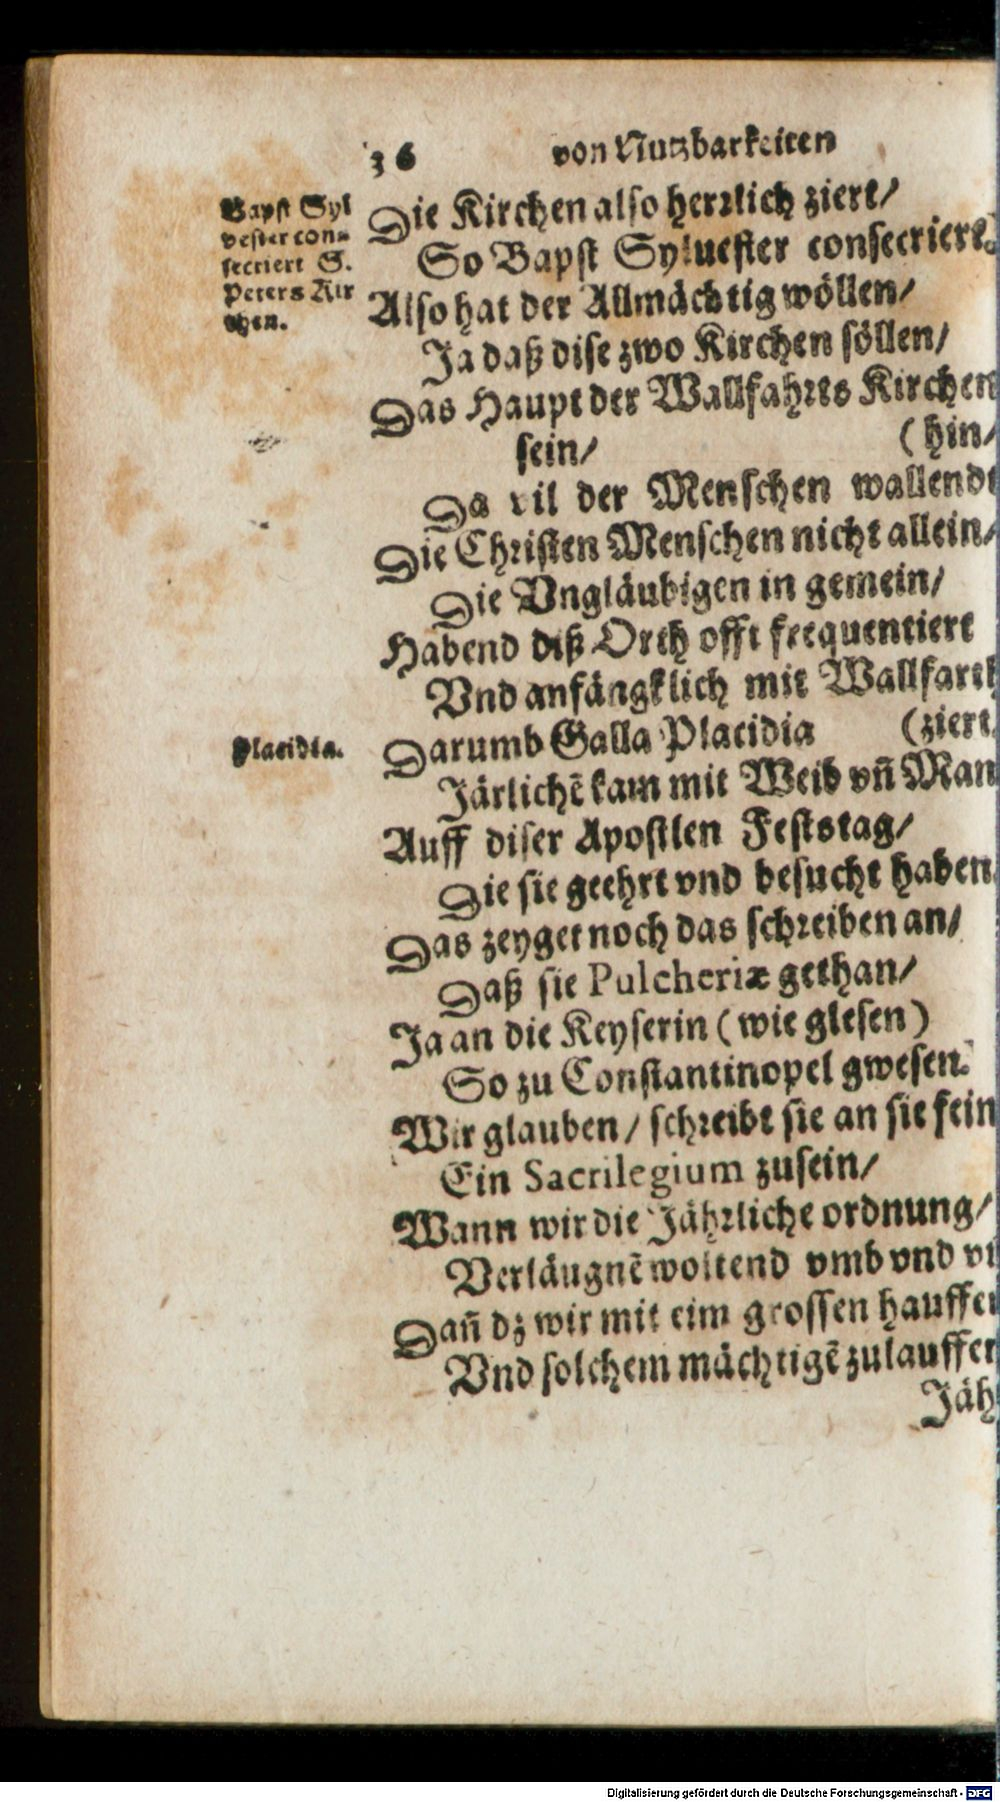 36 von Nutzbarkeiten
Bapst Syl
vester con-
secriert S.
Peters Kir
chen.
Die Kirchen also herrlich ziert/
So Bapst Syluester consecriert.
Also hat der Allmächtig wöllen/
Ja daß dise zwo Kirchen söllen/
Das Haupt der Wallfahrts Kirchen
sein/ (hin/
Da vil der Menschen wallendt
Die Christen Menschen nicht allein/
Die Vngläubigen in gemein/
Habend diß Orth offt frequentiert
Vnd anfängklich mit Wallfarth
Placidia.
Darumb Galla Placidia (ziert.
Järlichē kam mit Weib vn̄ Man
Auff diser Apostlen Feststag/
Die sie geehrt vnd besucht haben
Das zeyget noch das schreiben an/
Daß sie Pulcheriæ gethan/
Ja an die Keyserin (wie glesen)
So zu Constantinopel gwesen.
Wir glauben/ schreibt sie an sie fein
Ein Sacrilegium zusein/
Wann wir die Jährliche ordnung/
Verläugnē woltend vmb vnd vm
Dan̄ dz wir mit eim grossen hauffen
Vnd solchem mächtigē zulauffen
Jäh
Digitalisierung gefördert durch die Deutsche Forschungsgemeinschaft - DFG